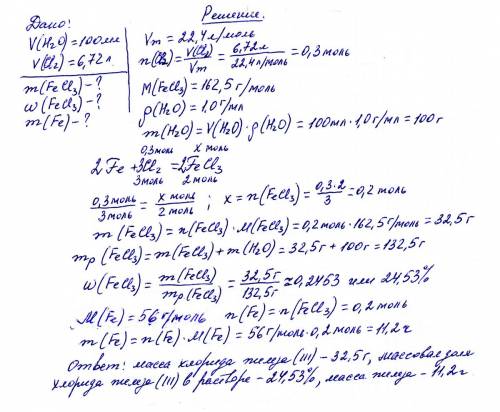 Дано:
V(H₂O)=100мл
V(Cl₂)=6,72л
m(FeCl₃)-?
w(FeCl₃)-?
m(Fe)-?
Решение.
Vm = 22,4 л/моль
n(Cl₂) = V(Cl₂)/Vm = 6,72л/22,4 л/моль = 0,3 моль
M(FeCl₃)=162,5 г/моль
ρ(H₂O)=1,0 г/мл
m(H₂O)=V(H₂O)·ρ(H₂O)=100мл·1,0г/мл=100г
0,3моль x моль
2Fe + 3Cl₂ = 2FeCl₃
3моль 2моль
0,3моль/3моль = x моль/2 моль ; x = n(FeCl₃) = 0,3·2/3 = 0,2 моль
m(FeCl₃)=n(FeCl₃)·M(FeCl₃)=0,2моль·162,5г/моль=32,5г
mр(FeCl₃)=m(FeCl₃)+m(H₂O)=32,5г+100г=132,5г
w(FeCl₃) = m(FeCl₃)/mр(FeCl₃) = 32,5г/132,5г ≈ 0,2453 или 24,53%
M(Fe)=56 г/моль n(Fe)=n(FeCl₃)=0,2 моль
m(Fe)=n(Fe)·M(Fe)=56г/моль·0,2моль=11,2г
Ответ: масса хлорида железа (III) - 32,5г, массовая доля
хлорида железа (III) в растворе - 24,53%, масса железа - 11,2г